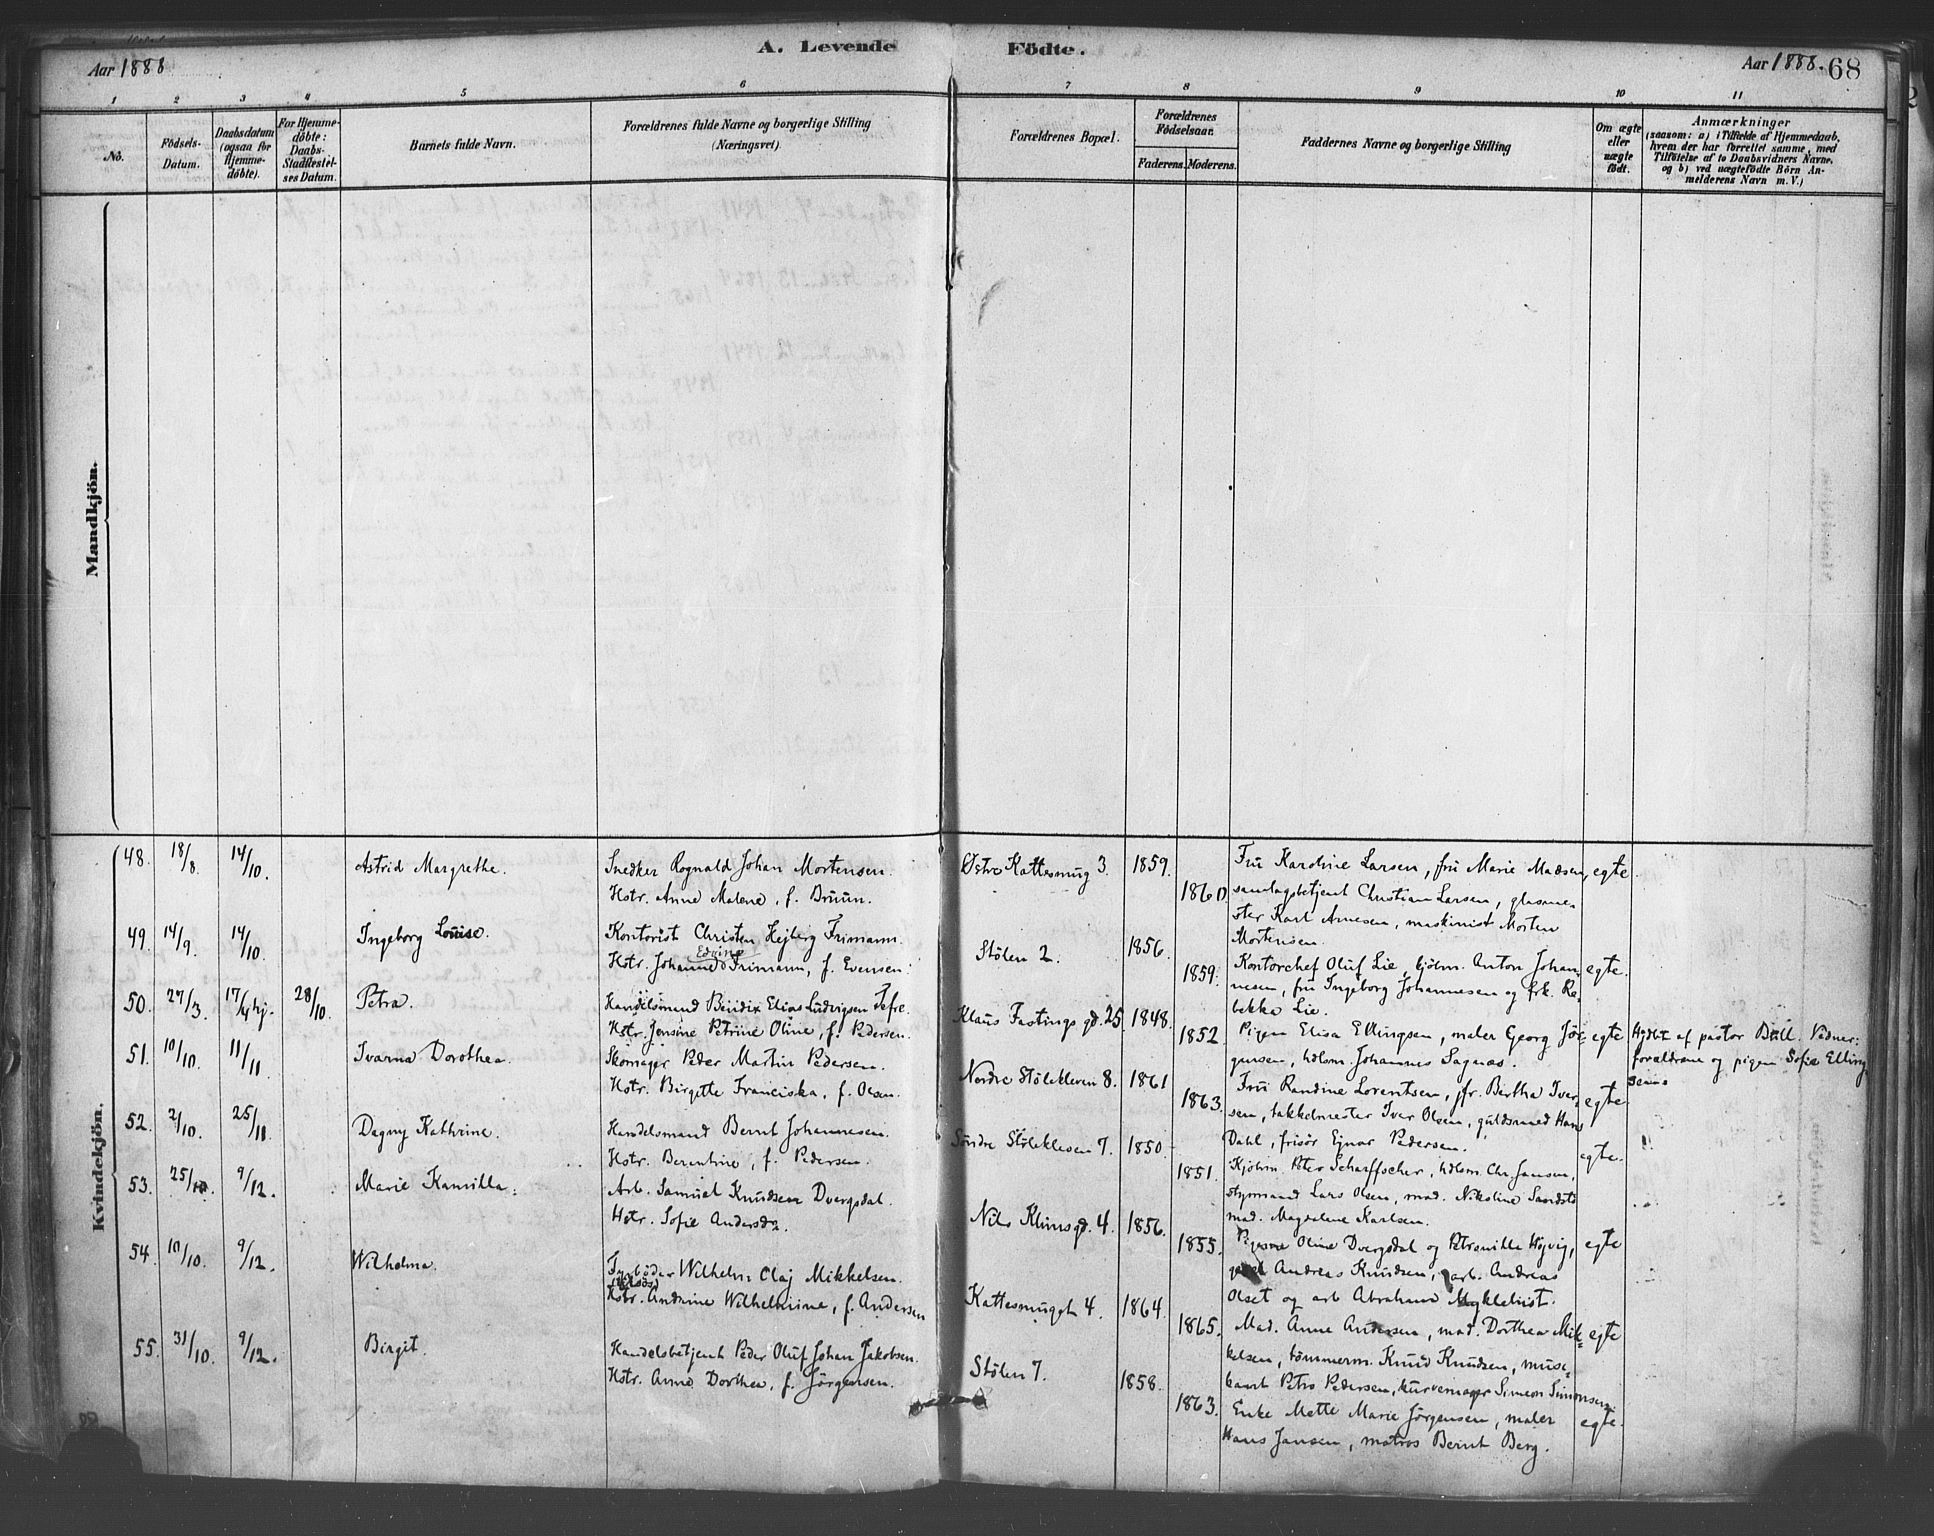 A. Levende Födte.
Aar 1888
Aar 1888. 68
1 2 3 4 5 6 7 8 9 10 11
No.
Födsels-
Datum.
Daabsdatum
(ogsaa for
Hjemme-
döbte).
For Hjemme-
döbte:
Daabs-
Stadfæstel-
ses Datum.
Barnets fulde Navn.
Forældrenes fulde Navne og borgerlige Stilling
(Næringsvei)
Forældrenes Bopæl.
Forældrenes
Födselsaar.
Faderens. Moderens.
Faddernes Navne og borgerlige Stilling
Om ægte
eller
uægte
födt.
Anmærkninger
(saasom: a) i Tilfælde af Hjemmedaab,
hvem der har forrettet samme, med
Tilföielse af to Daabsvidners Navne,
og b) ved uægtefödte Börn An-
melderens Navn m. V.)
Mandkjön.
Kvindekjön.
48. 18/8. 14/10. Astrid Margrethe.
Snedker Rognald Johan Mortensen.
Hstr. Anne Malene, f. Bruun.
Østre Kattesmug 3. 1859. 1860.
Fru Karoline Larsen, fru Marie Madsen,
samlagsbetjent Christian Larsen, glasme-
ster Karl Arnesen, maskinist Morten
Mortensen.
egte.
49. 14/9. 14/10. Ingeborg Louise.
Kontorist Christen Hejberg Frimann.
Edvine
Hstr. Johanne Frimann, f. Evensen.
Stølen 2. 1856. 1859.
Kontorchef Oluf Lie, kjøbm. Anton Johan-
nesen, fru Ingeborg Johannesen og frk. Re-
bekka Lie.
egte.
50. 27/3. 17/4 hj. 28/10. Petra.
Handelsmand Bendix Elias Ludvigsen Tefre.
Hstr. Jensine Petrine Oline, f. Pedersen.
Klaus Fastings gd. 25 1848. 1852.
Pigen Elisa Ellingsen, maler Georg Jør-
gensen, hdlsm. Johannes Sagnæs.
egte
Hjdbt af pastor Bull. Vidner:
forældrene og pigen Sofie Elling-
sen.
51. 10/10. 11/11. Ivarna Dorothea.
Skomager Peder Martin Pedersen.
Hstr. Birgitte Franciska, f. Olsen.
Nordre Stølekleven 8. 1861 1863.
Fru Randine Lorentsen, fr. Bertha Iver-
sen, takkelmester Iver Olsen, guldsmed Hans
Dahl, frisør Ejnar Pedersen.
egte
52. 2/10. 25/11. Dagny Kathrine.
Handelsmand Bernt Johannesen.
Hstr. Berentine, f. Pedersen.
Søndre Stølekleven 7. 1850. 1851.
Kjøbm. Peter Scharffscher, hdlsm. Chr. Jansen,
styrmand Lars Olsen, mad. Nikoline
mad. Magdalene Karlsen.
egte.
53. 25/10. 9/12. Marie Kamilla.
Arb. Samuel Knudsen Dvergsdal.
Hstr. Sofie Andersd.
Nils Klims gd. 4. 1856. 1855.
Oline Dvergsdal og Petronille Højvig,
Andreas Knudsen, arb. Andreas
Olset og arb Abraham Myklebust.
egte
54. 10/10. 9/12. Wilhelma.
Fyrbøder Wilhelm Olaj Mikkelsen.
Hstr. Andrine Wilhelmine, f. Andersen
Kattesmuget 4. 1864. 1865.
Mad. Anne Andersen, mad. Dorthea Mik-
kelsen, tømmerm. Knud Knudsen, muse-
kant Petro Pedersen, kurvemager Simeon Simonsen.
egte
55. 31/10. 9/12. Birgit.
Handelsbetjent Peder Oluf Johan Jakobsen.
Hstr. Anne Dorthea, f. Jørgensen.
Stølen 7. 1858. 1863.
Enke Mette Marie Jørgensen, maler
Hans Jansen, matros Bernt Berg.
egte.